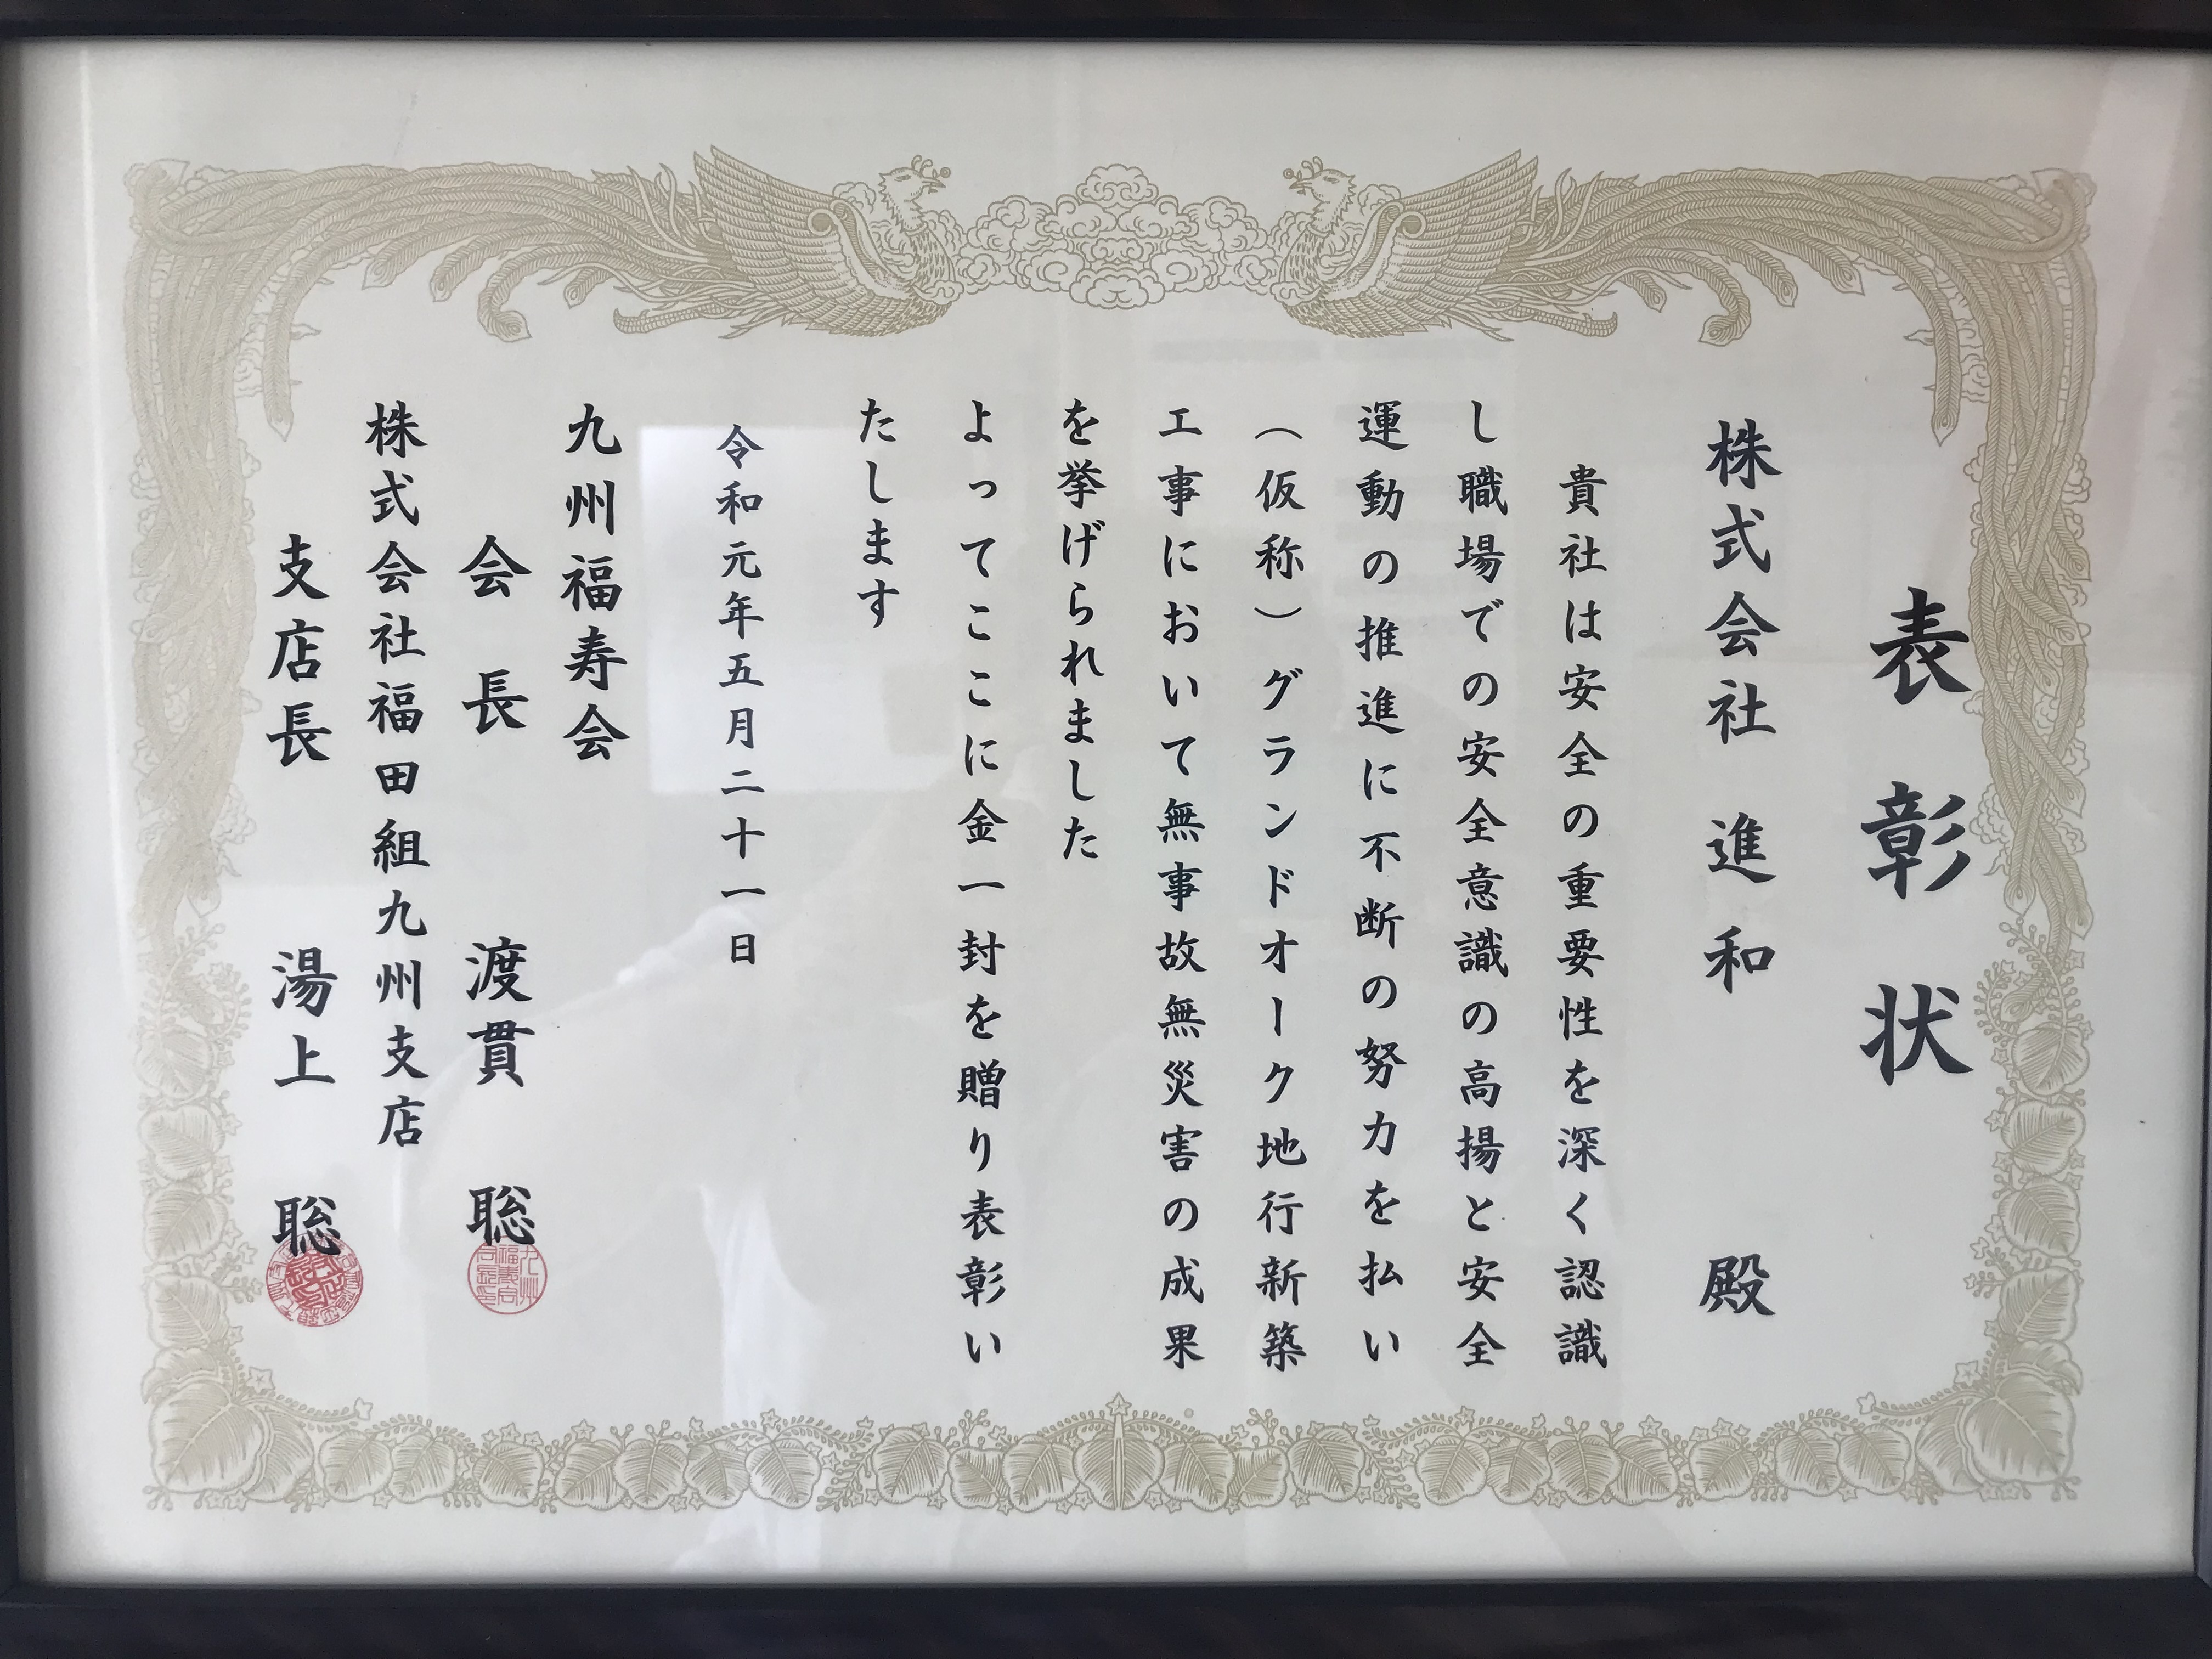 表彰状
株式会社 進和 殿
貴社は安全の重要性を深く認識
し職場での安全意識の高揚と安全
運動の推進に不断の努力を払い
（仮称）グランドオーク地行新築
工事において無事故無災害の成果
を挙げられました
よってここに金一封を贈り表彰い
たします
令和元年五月二十一日
九州福寿会
会長 渡貫 聡
株式会社福田組九州支店
支店長 湯上 聡